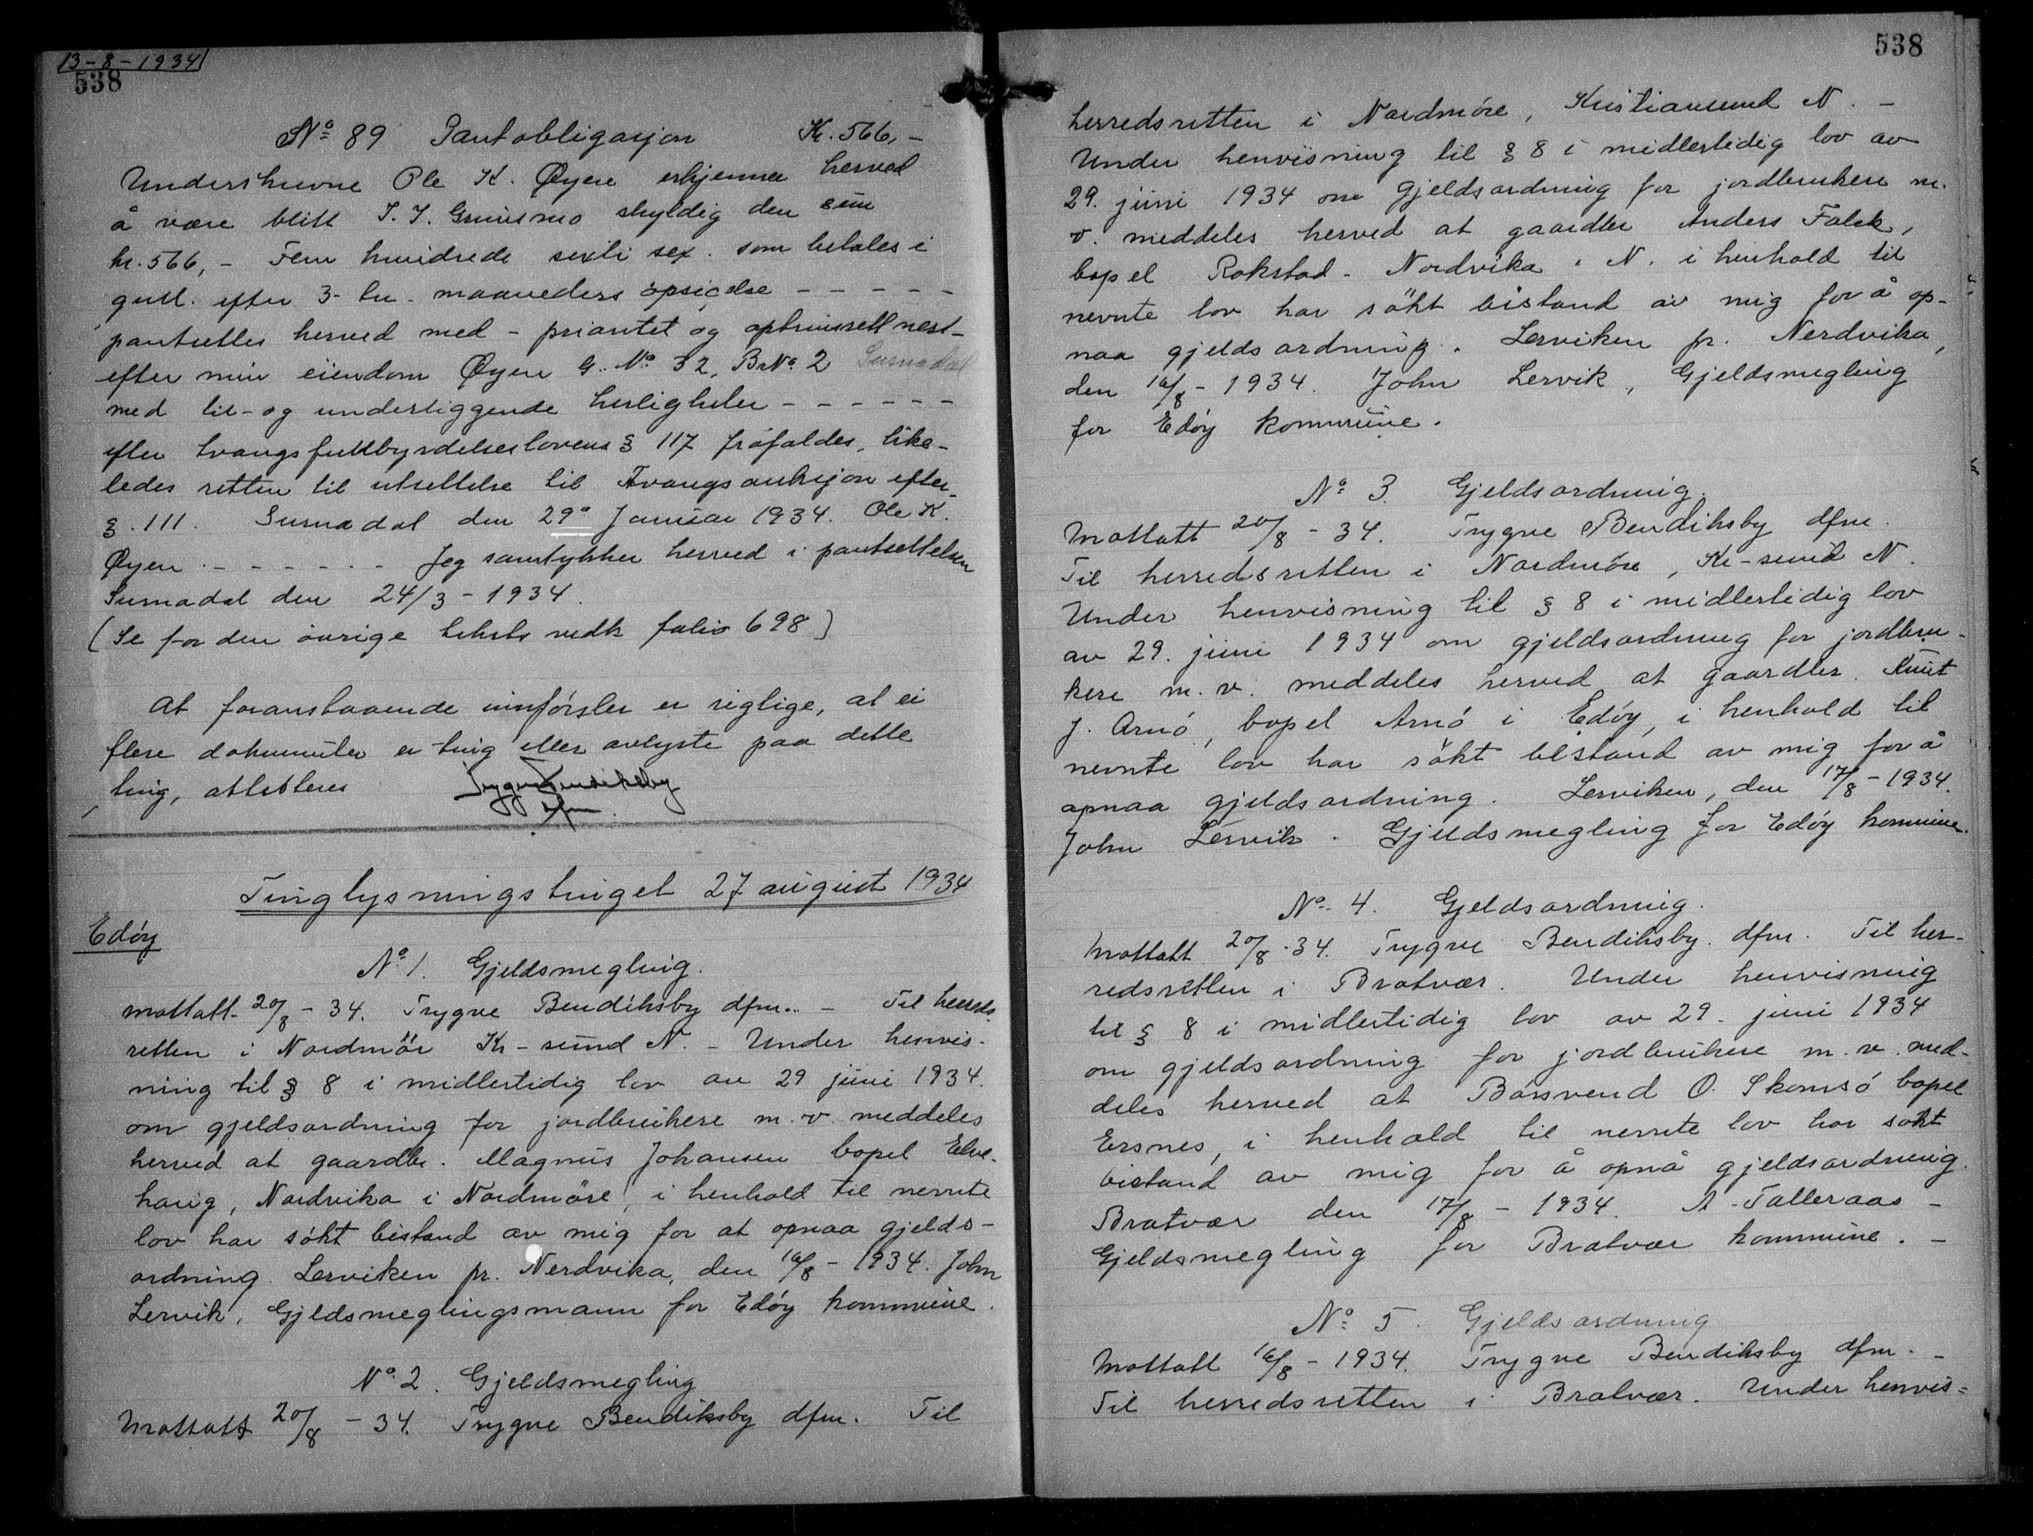 13-8-1934
538
No 89 Pantobligasjon Kr. 566,-
Underskrevne Ole K. Øyen erkjenner herved
å være blitt skyldig den sum
kr. 566,- Fem hundrede seksti sex. som betales i
gull. efter 3- tre- maaneders opsigelse - - - - -
pantsettes herved med - prioritet og optrinsrett nest-
efter min eiendom Øyen G. No 32, BrNo 2 Surnadal
med til- og underliggende herligheter - - - - - -
efter tvangsfuldbyrdelseslovens § 117 frafaldes, like-
ledes retten til utsettelse til Tvangsauksjon efter-
§. 111. Surnadal den 29de Januar 1934. Ole K.
Øyen. - - - - - - Jeg samtykker herved i pantsettelsen
Surnadal den 24/3 - 1934.
(Se for den øvrige teksts vedk folio 698)
At foranstaaende innførsler er rigtige, at ei
flere dokumenter er ting eller avlyste paa dette
ting, attesteres Trygve Bendiksby
dfm.
Tinglysningstinget 27 august 1934
Edøy
No 1. Gjeldsmegling.
Mottatt 20/8 - 34. Trygve Bendiksby dfm.. - Til herreds
retten i Nordmör Kr-sund N. - Under henvis-
ning til § 8 i midlertidig lov av 29 juni 1934.
om gjeldsordning for jordbrukere m. v. meddeles
herved at gaardbr. Magnus Johansen bopel Elve-
haug, Nordvika i Nordmöre, i henhold til nevnte
lov har søkt bistand av mig for at opnaa gjelds-
ordning. Lerviken pr. Nerdvika, den 16/8 - 1934. John
Lervik, Gjeldsmeglingsmann for Edøy kommune.
No 2. Gjeldsmegling
Mottatt 20/8 - 34. Trygve Bendiksby dfm. Til
538
herredsretten i Nordmöre, Kristiansund N. -
Under henvisning til § 8 i midlertidig lov av
29. juni 1934 om gjeldsordning for jordbrukere m.
v. meddeles herved at gaardbr Anders Falck,
bopel Rokstad - Nordvika. N. i henhold til
nevnte lov har søkt bistand av mig for å op-
naa gjeldsordning. Lerviken pr. Nerdvika,
den 16/8 - 1934. John Lervik, Gjeldsmegling
for Edøy kommune.
No 3. Gjeldsordning.
Mottatt 20/8 - 34. Trygve Bendiksby dfm.
Til herredsretten i Nordmöre, Kr-sund N.
Under henvisning til § 8 i midlertidig lov
av 29. juni 1934 om gjeldsordning for jordbru-
kere m. v. meddeles herved at gaardbr. Knut
J. Arnö, bopel Arnö i Edøy, i henhold til
nevnte lov har søkt bistand av mig for å
opnaa gjeldsordning. Lerviken, den 17/8 - 1934.
John Lervik. Gjeldsmegling for Edøy kommune.
No. 4. Gjeldsordning.
Mottatt 20/8 - 34. Trygve Bendiksby. dfm. Til her-
redsretten i Bratvær. Under henvisning
til § 8 i midlertidig lov av 29. juni 1934
om gjeldsordning for jordbrukere m. v. med-
deles herved at Barsvend O. Skomsö bopel
Ersnes, i henhold til nevnte lov har søkt
bistand av mig for å opnå gjeldsordning.
Bratvær den 17/8 - 1934. A. Talleraas -
Gjeldsmegling for Bratvær kommune. -
No 5. Gjeldsordning
Mottatt 16/8 - 1934. Trygve Bendiksby dfm. -
Til herredsretten i Bratvær. Under henvis=